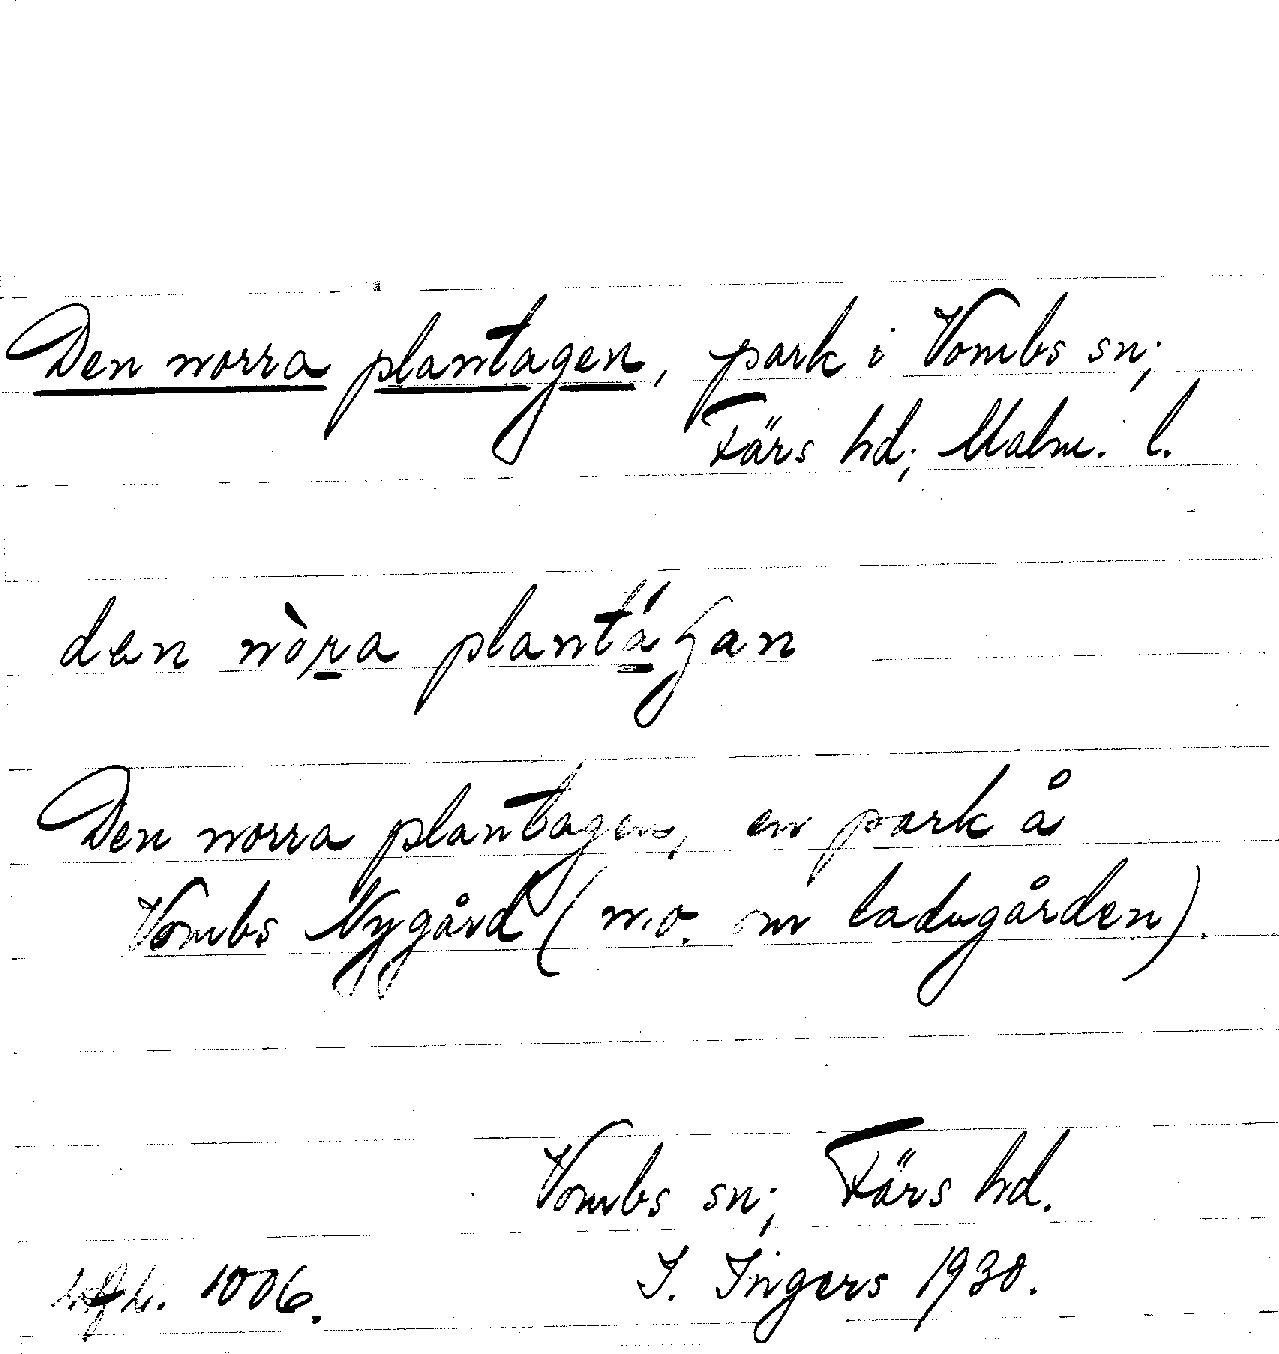 Den norra plantagen, park i Vombs sn;
Färs hd; Malm. l.
Den norra plantagen, en park å
Vombs Nygård (n.o. om ladugården).
Vombs sn; Färs hd.
I. Ingers 1930.
1006.